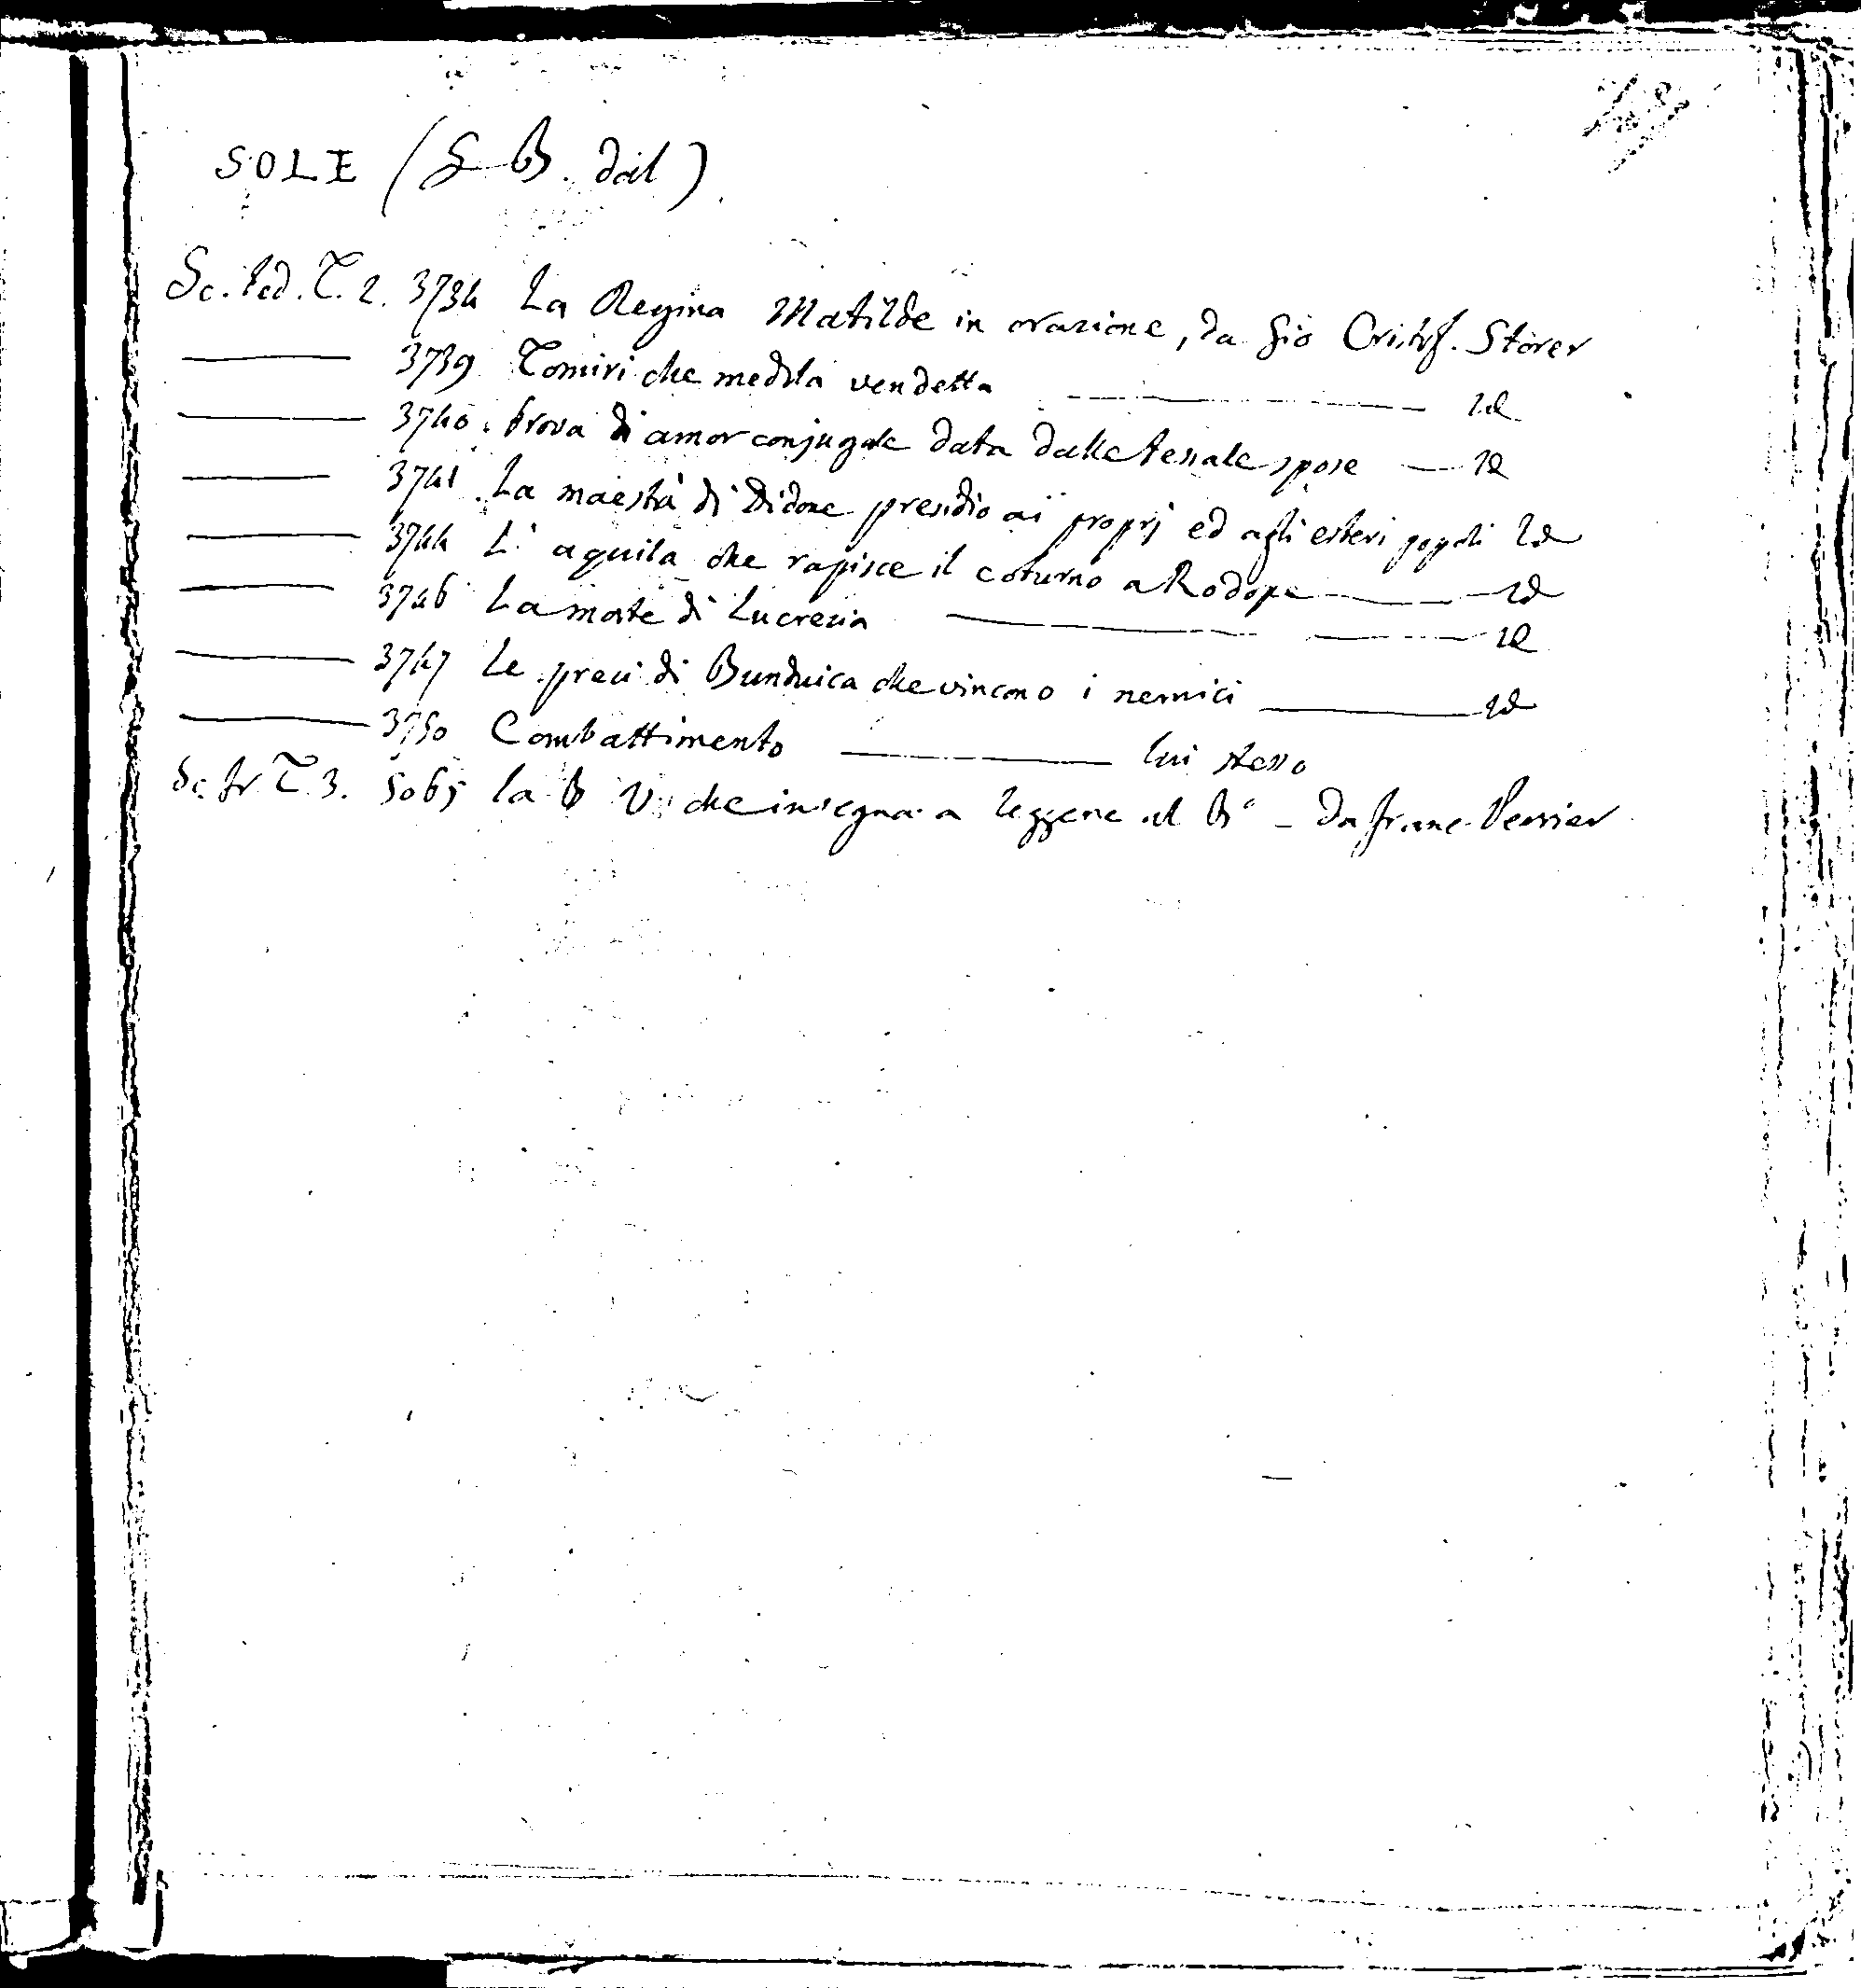 SOLE (G B. dal)
Sc. ted. T. 2. 3734 La Regina Matilde in orazione, da Gio Cristof. Storer
3739 Tomiri che medita vendetta id
3740. Prova di amor conjugale data dalle tessale spose id
3741 La maestà di Didone presidio ai proprj ed agli esteri popoli id
3744 L'aquila che rapisce il coturno a Rodope id
3746 La morte di Lucrezia id
3747 Le preci di Bunduica che vincono i nemici id
3750 Combattimento lui stesso
Sc. fr T. 3. 5065 la B V. che insegna a leggere al B° - da franc. Perrier